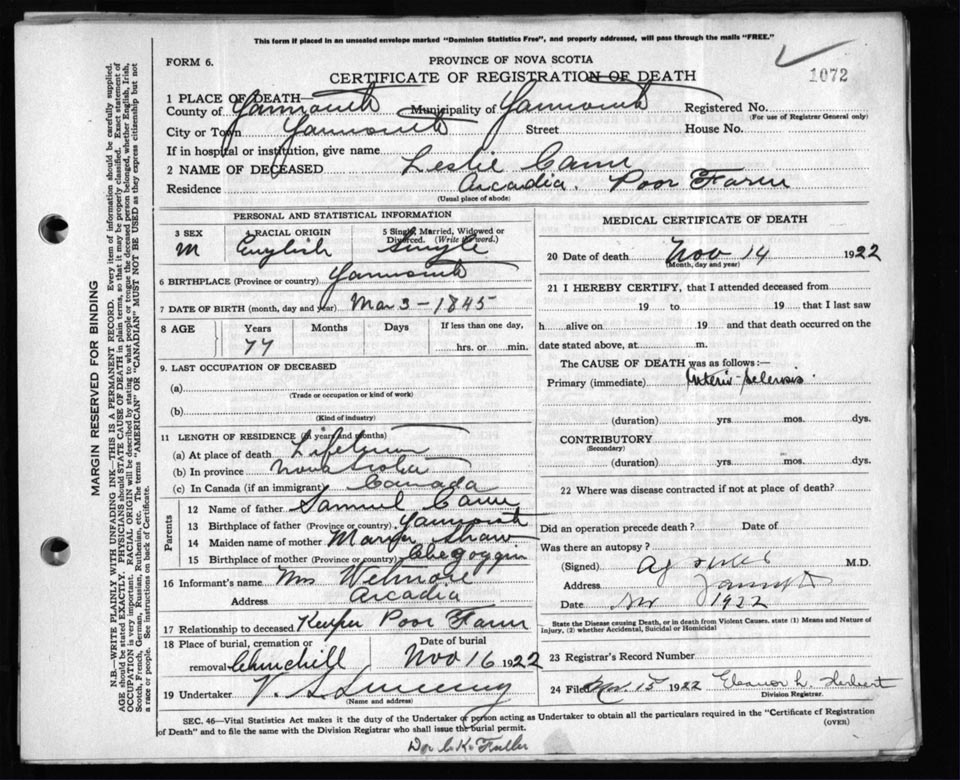 This form if placed in an unsealed envelope marked "Dominion Statistics Free", and properly addressed, will pass through the mails "FREE."
FORM 6.
PROVINCE OF NOVA SCOTIA
CERTIFICATE OF REGISTRATION OF DEATH
1072
1 PLACE OF DEATH—
County of Yarmouth Municipality of Yarmouth Registered No.
(For use of Registrar General only)
City or Town Yarmouth Street House No.
If in hospital or institution, give name
2 NAME OF DECEASED Leslie Cann
Residence Arcadia. Poor Farm
(Usual place of abode)
PERSONAL AND STATISTICAL INFORMATION
3 SEX M
4 RACIAL ORIGIN English
5 Single, Married, Widowed or Divorced. (Write the word.) Single
6 BIRTHPLACE (Province or country) Yarmouth
7 DATE OF BIRTH (month, day and year) Mar 3 - 1845
8 AGE Years Months Days If less than one day,
77 hrs. or min.
9. LAST OCCUPATION OF DECEASED
(a)
(Trade or occupation or kind of work)
(b)
(Kind of industry)
11 LENGTH OF RESIDENCE (in years and months)
(a) At place of death Lifetime
(b) In province Nova Scotia
(c) In Canada (if an immigrant) Canada
Parents
12 Name of father Samuel Cann
13 Birthplace of father (Province or country) Yarmouth
14 Maiden name of mother Shaw
15 Birthplace of mother (Province or country) Chegoggin
16 Informant's name Mrs Wetmore
Address Arcadia
17 Relationship to deceased Keeper Poor Farm
18 Place of burial, cremation or removal Churchill
Date of burial Nov 16 1922
19 Undertaker V. S. Sweeny
(Name and address)
MEDICAL CERTIFICATE OF DEATH
20 Date of death Nov 14 1922
(Month, day and year)
21 I HEREBY CERTIFY, that I attended deceased from
19 to 19 , that I last saw
h alive on 19 and that death occurred on the
date stated above, at m.
The CAUSE OF DEATH was as follows:—
Primary (immediate) Arterio-sclerosis.
(duration) yrs mos. dys.
CONTRIBUTORY
(Secondary)
(duration) yrs. mos. dys.
22 Where was disease contracted if not at place of death?
Did an operation precede death? Date of
Was there an autopsy?
(Signed) M.D.
Address Yarmouth
Date Nov 1922
State the Disease causing Death, or in death from Violent Causes, state (1) Means and Nature of Injury, (2) whether Accidental, Suicidal or Homicidal
23 Registrar's Record Number
24 Filed Nov. 15 1922 Eleanor L. Herbert
Division Registrar.
SEC. 46—Vital Statistics Act makes it the duty of the Undertaker or person acting as Undertaker to obtain all the particulars required in the "Certificate of Registration
of Death" and to file the same with the Division Registrar who shall issue the burial permit.
(OVER)
Dr. C. K. Fuller
MARGIN RESERVED FOR BINDING
N.B.—WRITE PLAINLY WITH UNFADING INK—THIS IS A PERMANENT RECORD. Every item of information should be carefully supplied.
AGE should be stated EXACTLY. PHYSICIANS should STATE CAUSE OF DEATH in plain terms, so that it may be properly classified. Exact statement of
OCCUPATION is very important. RACIAL ORIGIN will be described by stating to what people or tongue the deceased person belonged, whether English, Irish,
Scotch, French, German, Russian, Ruthenian, etc. The terms "AMERICAN" OR "CANADIAN" MUST NOT BE USED as they express citizenship but not
a race or people. See instructions on back of Certificate.